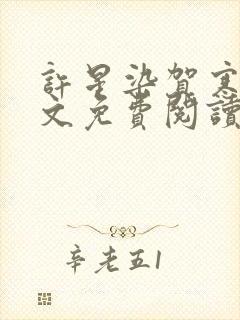 許星染賀寒
文免費閱讀
辛老五1